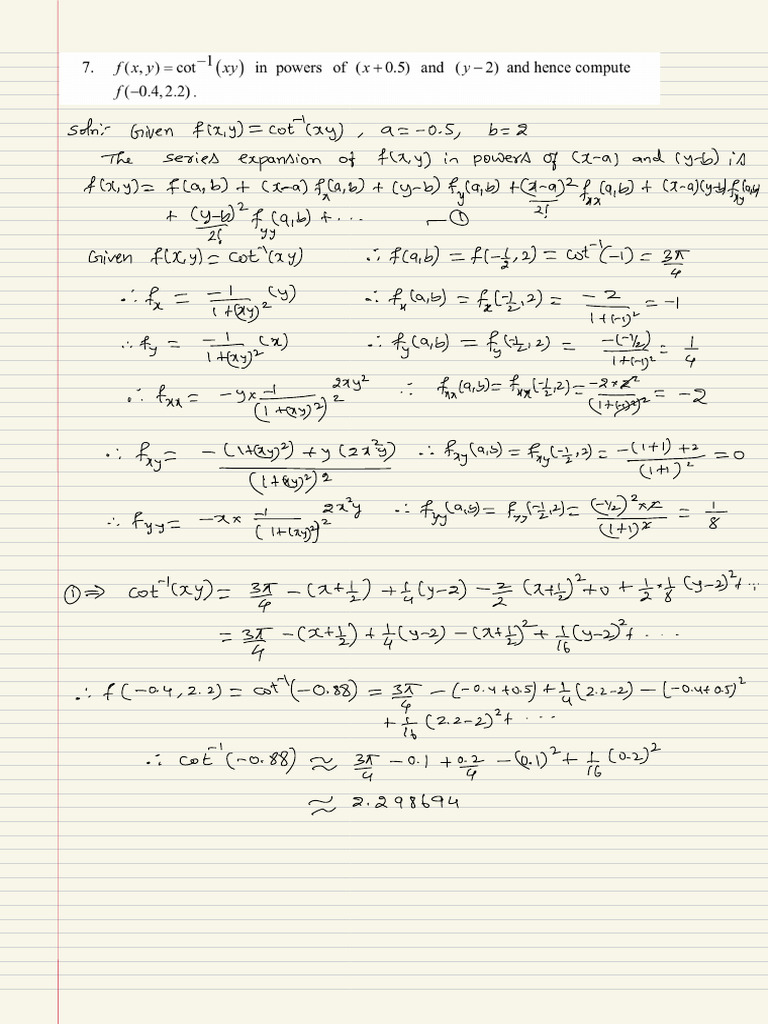 7. f(x, y) = cot⁻¹(xy) in powers of (x + 0.5) and (y − 2) and hence compute
f(−0.4, 2.2).
Soln:- Given f(x,y) = cot⁻¹(xy), a = -0.5, b = 2
The series expansion of f(x,y) in powers of (x-a) and (y-b) is
f(x,y) = f(a,b) + (x-a) f_x(a,b) + (y-b) f_y(a,b) + (x-a)²/2! f_xx(a,b) + (x-a)(y-b) f_xy(a,b)
+ (y-b)²/2! f_yy(a,b) + ... —①
Given f(x,y) = cot⁻¹(xy) ∴ f(a,b) = f(-1/2, 2) = cot⁻¹(-1) = 3π/4
∴ f_x = -1/(1+(xy)²) (y) ∴ f_x(a,b) = f_x(-1/2, 2) = -2/(1+(-1)²) = -1
∴ f_y = -1/(1+(xy)²) (x) ∴ f_y(a,b) = f_y(-1/2, 2) = -(-1/2)/(1+(-1)²) = 1/4
∴ f_xx = -y × -1/(1+(xy)²)² 2xy² ∴ f_xx(a,b) = f_xx(-1/2, 2) = -2×2²/(1+(-1)²)² = -2
∴ f_xy = -(1+(xy)²) + y(2x²y)/(1+(xy)²)² ∴ f_xy(a,b) = f_xy(-1/2, 2) = -(1+1)+2/(1+1)² = 0
∴ f_yy = -x × -1/(1+(xy)²)² 2x²y ∴ f_yy(a,b) = f_yy(-1/2, 2) = (-1/2)²×2/(1+1)² = 1/8
① ⇒ cot⁻¹(xy) = 3π/4 - (x+1/2) + 1/4(y-2) - 2/2 (x+1/2)² + 0 + 1/2 * 1/8 (y-2)² + ...
= 3π/4 - (x+1/2) + 1/4(y-2) - (x+1/2)² + 1/16(y-2)² + ...
∴ f(-0.4, 2.2) = cot⁻¹(-0.88) = 3π/4 - (-0.4+0.5) + 1/4(2.2-2) - (-0.4+0.5)²
+ 1/16 (2.2-2)² + ...
∴ cot⁻¹(-0.88) ≈ 3π/4 - 0.1 + 0.2/4 - (0.1)² + 1/16 (0.2)²
≈ 2.298694